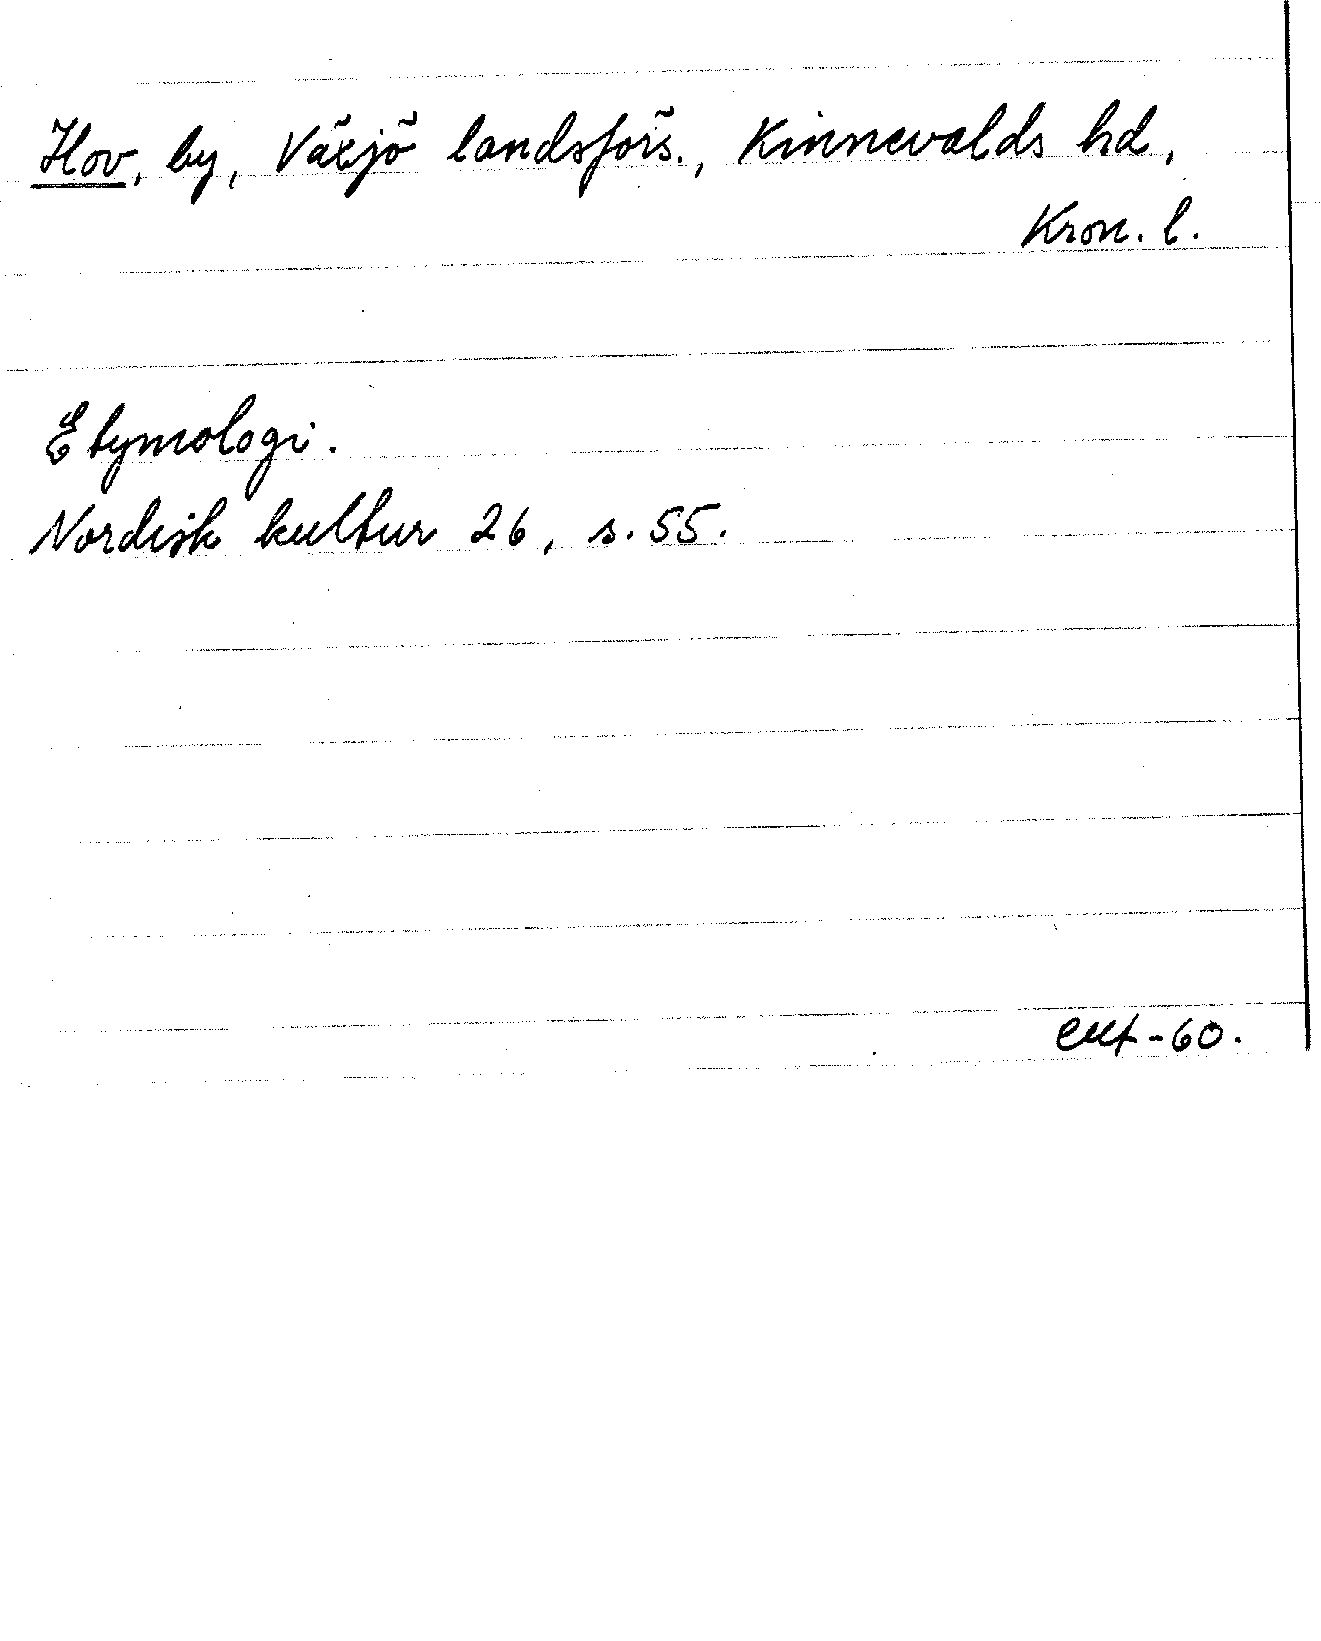 Hov, by, Växjö landsförs., Kinnevalds hd,
Kron. l.
Etymologi.
Nordisk kultur 26, s. 55.
-60.